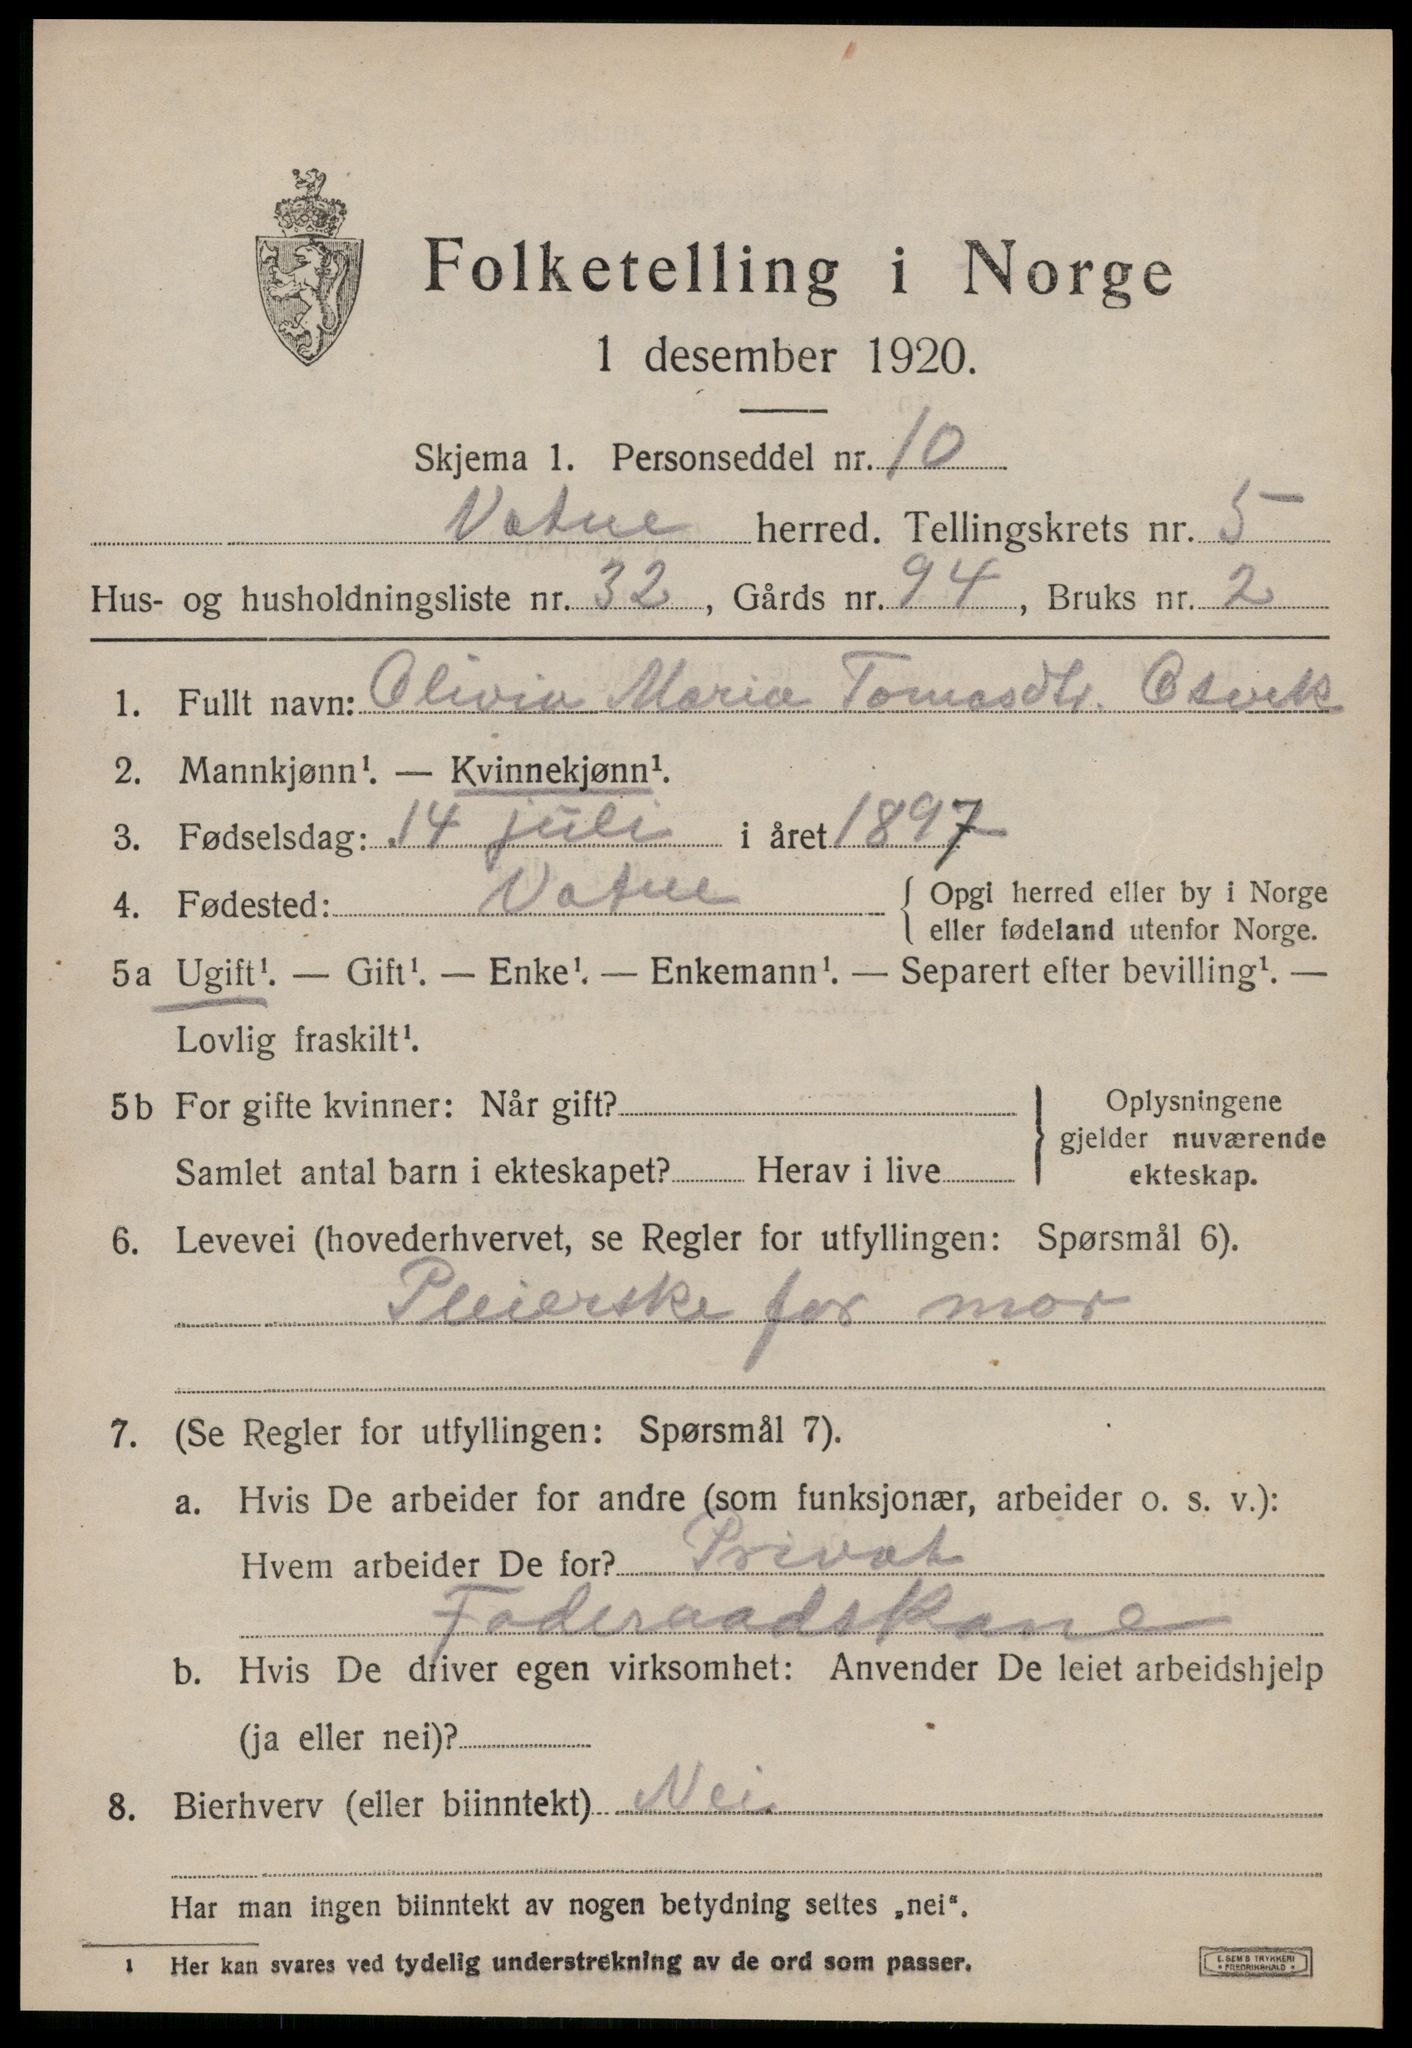 Folketelling i Norge
1 desember 1920.
Skjema 1. Personseddel nr. 10
Vatne herred. Tellingskrets nr. 5
Hus- og husholdningsliste nr. 32, Gårds nr. 94, Bruks nr. 2
1. Fullt navn: Olivia Maria Tomasdtr.
2. Mannkjønn¹. — Kvinnekjønn¹.
3. Fødselsdag: 14 juli i året 1897
4. Fødested: Vatne { Opgi herred eller by i Norge
eller fødeland utenfor Norge.
5a Ugift¹. — Gift¹. — Enke¹. — Enkemann¹. — Separert efter bevilling¹. —
Lovlig fraskilt¹.
5b For gifte kvinner: Når gift?
Samlet antal barn i ekteskapet? Herav i live
} Oplysningene
gjelder nuværende
ekteskap.
6. Levevei (hovederhvervet, se Regler for utfyllingen: Spørsmål 6).
Pleierske for mor
7. (Se Regler for utfyllingen: Spørsmål 7).
a. Hvis De arbeider for andre (som funksjonær, arbeider o. s. v.):
Hvem arbeider De for? Privat
Føderaadskone
b. Hvis De driver egen virksomhet: Anvender De leiet arbeidshjelp
(ja eller nei)?
8. Bierhverv (eller biinntekt) Nei
Har man ingen biinntekt av nogen betydning settes „nei“.
1 Her kan svares ved tydelig understrekning av de ord som passer.
E. SEM'S TRYKKERI
• FREDRIKSHALD •